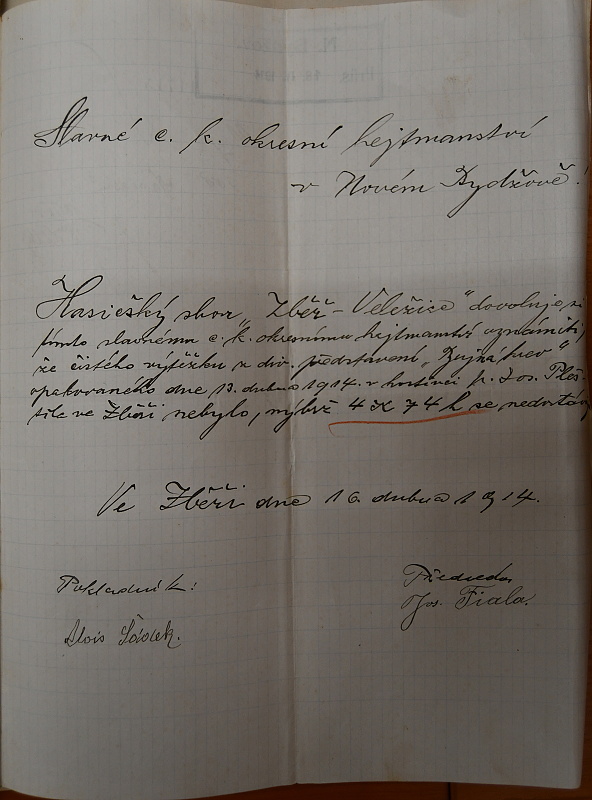 Slavné c. k. okresní hejtmanství
v Novém Bydžově!
Hasičský sbor „Zběř-Veležice“ dovoluje si
tímto slavnému c. k. okresnímu hejtmanství oznámiti,
že čistého výtěžku z div. představení „Bujná krev“
opakovaného dne 13. dubna 1914. v hostinci p. Jos.
ve Zběři nebylo, nýbrž 4 K 74 h se nedostáv
Ve Zběři dne 16. dubna 1914.
Pokladník: Předseda
Alois Sádek. Jos. Fiala.